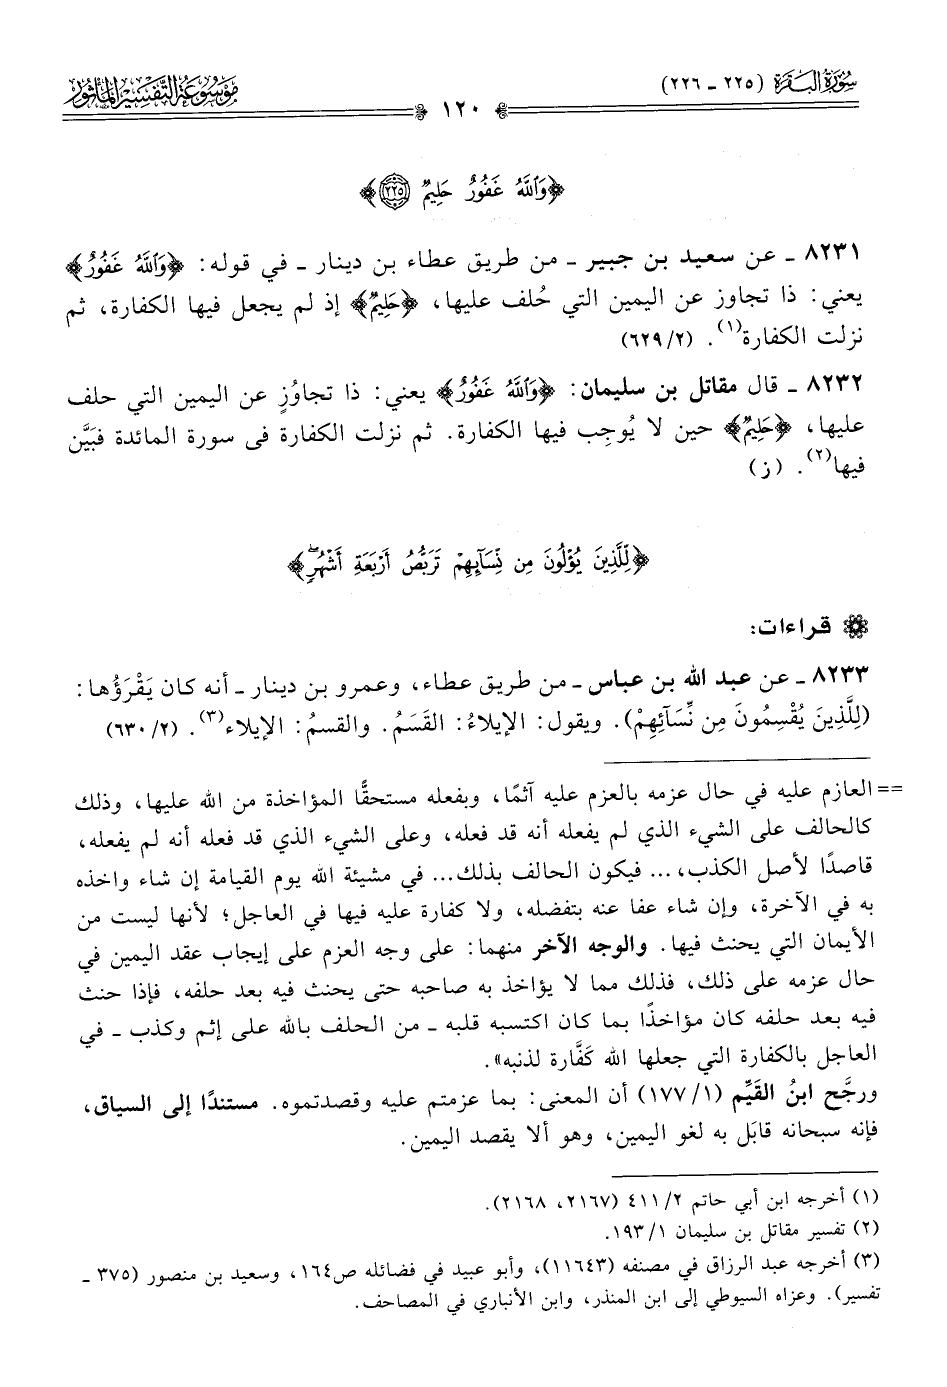 سُورَةُ البَقَرَة (٢٢٥ - ٢٢٦)
١٢٠
مَوْسُوعَةُ التَّفْسِيرِ المَأْثُور
﴿وَٱللَّهُ غَفُورٌ حَلِيمٌ ٢٢٥﴾
٨٢٣١ - عن سعيد بن جبير - من طريق عطاء بن دينار - في قوله: ﴿وَٱللَّهُ غَفُورٌ﴾
يعني: ذا تجاوز عن اليمين التي حُلف عليها، ﴿حَلِيمٌ﴾ إذ لم يجعل فيها الكفارة، ثم
نزلت الكفارة(١). (٢/ ٦٢٩)
٨٢٣٢ - قال مقاتل بن سليمان: ﴿وَٱللَّهُ غَفُورٌ﴾ يعني: ذا تجاوُزٍ عن اليمين التي حلف
عليها، ﴿حَلِيمٌ﴾ حين لا يُوجِب فيها الكفارة. ثم نزلت الكفارة فى سورة المائدة فبَيَّن
فيها(٢). (ز)
﴿لِّلَّذِينَ يُؤْلُونَ مِن نِّسَآئِهِمْ تَرَبُّصُ أَرْبَعَةِ أَشْهُرٍۖ﴾
قراءات:
٨٢٣٣ - عن عبد الله بن عباس - من طريق عطاء، وعمرو بن دينار - أنه كان يَقْرَؤُها:
(لِلَّذِينَ يُقْسِمُونَ مِن نِّسَآئِهِمْ). ويقول: الإيلاءُ: القَسَمُ. والقسمُ: الإيلاء(٣). (٢/ ٦٣٠)
== العازم عليه في حال عزمه بالعزم عليه آثمًا، وبفعله مستحقًّا المؤاخذة من الله عليها، وذلك
كالحالف على الشيء الذي لم يفعله أنه قد فعله، وعلى الشيء الذي قد فعله أنه لم يفعله،
قاصدًا لأصل الكذب، ... فيكون الحالف بذلك... في مشيئة الله يوم القيامة إن شاء واخذه
به في الآخرة، وإن شاء عفا عنه بتفضله، ولا كفارة عليه فيها في العاجل؛ لأنها ليست من
الأيمان التي يحنث فيها. والوجه الآخر منهما: على وجه العزم على إيجاب عقد اليمين في
حال عزمه على ذلك، فذلك مما لا يؤاخذ به صاحبه حتى يحنث فيه بعد حلفه، فإذا حنث
فيه بعد حلفه كان مؤاخذًا بما كان اكتسبه قلبه - من الحلف بالله على إثم وكذب - في
العاجل بالكفارة التي جعلها الله كَفَّارة لذنبه».
ورجَّح ابنُ القَيِّم (١/ ١٧٧) أن المعنى: بما عزمتم عليه وقصدتموه. مستندًا إلى السياق،
فإنه سبحانه قابَل به لغو اليمين، وهو ألا يقصد اليمين.
(١) أخرجه ابن أبي حاتم ٢/ ٤١١ (٢١٦٧، ٢١٦٨).
(٢) تفسير مقاتل بن سليمان ١/ ١٩٣.
(٣) أخرجه عبد الرزاق في مصنفه (١١٦٤٣)، وأبو عبيد في فضائله ص١٦٤، وسعيد بن منصور (٣٧٥ -
تفسير). وعزاه السيوطي إلى ابن المنذر، وابن الأنباري في المصاحف.